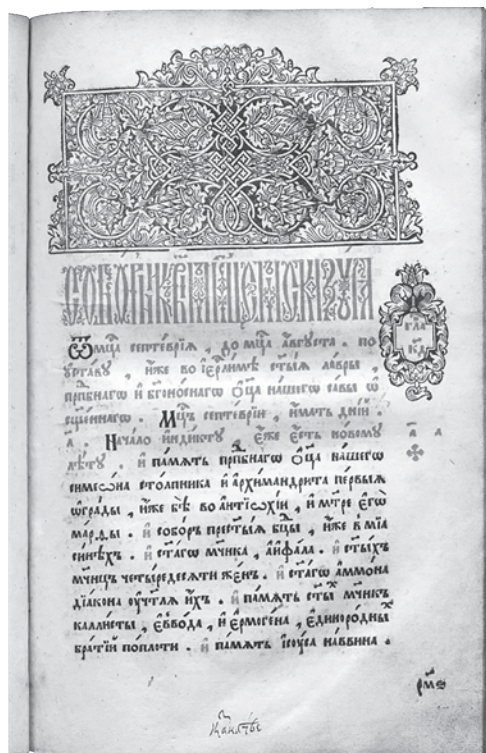 СОБОРНИК
гла
к҃д
Ѿ мц҃а септеврїѧ , до мц҃а а҆́вгꙋста . по
ᲂу҆ста́вꙋ , и҆́же во і҆ерⷭ҇ли́мѣ ст҃ы́ѧ ла́вры ,
прпⷣбнагѡ и҆ бг҃оно́снагѡ ѻ҆ц҃а на́шегѡ са́вы ѡ҆
сщ҃е́ннагѡ . Мцⷭ҇ъ септе́врїи , и҆́мать дні́й .
а҃ . Нача́ло и҆нди́ктꙋ , є҆́же є҆́сть но́вомꙋ а҃ а
лѣ́тꙋ . и҆ па́мѧть прпⷣбнагѡ ѻ҆ц҃а на́шегѡ
симеѡ́на сто́лпника и҆ а҆рхимандри́та пе́рвыѧ
ѡ҆гра́ды , и҆́же бѣ̀ во а҆нтїѡхі́и , и҆ мт҃ре є҆гѡ̀
ма́рѳы . и҆ собо́ръ прест҃ы́ѧ бц҃ы , и҆́же в мїа
сине́хъ . и҆ ст҃а́гѡ мч҃нка , а҆ифа́ла . и҆ ст҃ы́хъ
мч҃нцъ четыредесѧти же́нъ . и҆ ст҃а́гѡ а҆ммо́на
дїа́кона ᲂу҆чт҃лѧ и҆́хъ . и҆ па́мѧть ст҃ы́ⷯ мч҃нкъ
калли́сты , є҆вво́да , и҆ є҆рмоге́на , є҆диноро́дныⷯ
бра́тїй попло́ти . и҆ па́мѧть і҆сᲂу́са навви́на .
рм҃ѳ